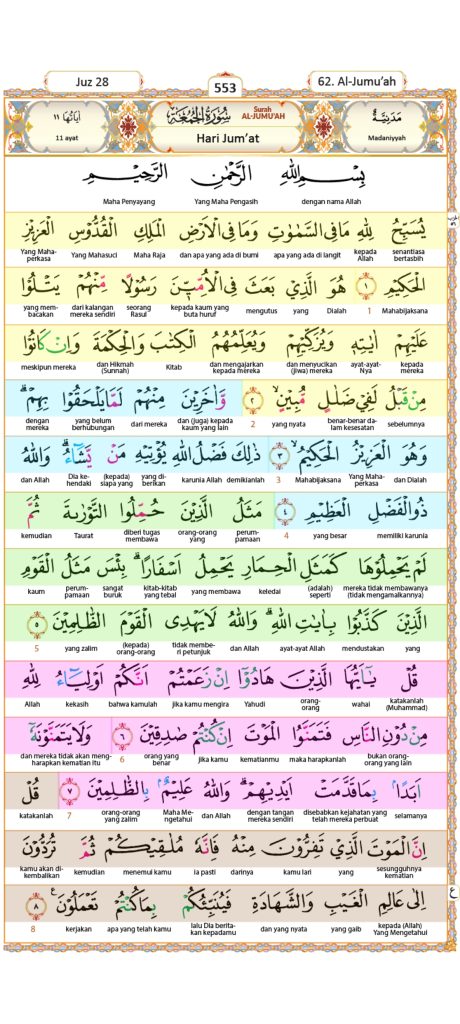 Juz 28
553
62. Al-Jumu'ah
مَدَنِيَّة
Madaniyyah
سُوْرَةُ الْجُمُعَةِ
Surah AL-JUMU'AH
Hari Jum'at
اٰيَاتُهَا ١١
11 ayat
بِسْمِ اللّٰهِ الرَّحْمٰنِ الرَّحِيْمِ
dengan nama Allah Yang Maha Pengasih Maha Penyayang
يُسَبِّحُ لِلّٰهِ مَا فِى السَّمٰوٰتِ وَمَا فِى الْاَرْضِ الْمَلِكِ الْقُدُّوْسِ الْعَزِيْزِ
senantiasa bertasbih kepada Allah apa yang ada di langit dan apa yang ada di bumi Maha Raja Yang Mahasuci Yang Maha-perkasa
الْحَكِيْمِ ١ هُوَ الَّذِيْ بَعَثَ فِى الْاُمِّيّٖنَ رَسُوْلًا مِّنْهُمْ يَتْلُوْا
Mahabijaksana 1 Dialah yang mengutus kepada kaum yang buta huruf seorang Rasul dari kalangan mereka sendiri yang mem-bacakan
عَلَيْهِمْ اٰيٰتِهٖ وَيُزَكِّيْهِمْ وَيُعَلِّمُهُمُ الْكِتٰبَ وَالْحِكْمَةَ وَاِنْ كَانُوْا
kepada mereka ayat-ayat-Nya dan menyucikan (jiwa) mereka dan mengajarkan kepada mereka Kitab dan Hikmah (Sunnah) meskipun mereka
مِنْ قَبْلُ لَفِيْ ضَلٰلٍ مُّبِيْنٍ ٢ وَّاٰخَرِيْنَ مِنْهُمْ لَمَّا يَلْحَقُوْا بِهِمْ
sebelumnya benar-benar da-lam kesesatan yang nyata 2 dan (juga) kepada kaum yang lain dari mereka yang belum berhubungan dengan mereka
وَهُوَ الْعَزِيْزُ الْحَكِيْمُ ٣ ذٰلِكَ فَضْلُ اللّٰهِ يُؤْتِيْهِ مَنْ يَّشَاۤءُ وَاللّٰهُ
dan Dialah Yang Maha-perkasa Mahabijaksana 3 demikianlah karunia Allah yang di-berikan (kepada) siapa yang Dia ke-hendaki dan Allah
ذُو الْفَضْلِ الْعَظِيْمِ ٤ مَثَلُ الَّذِيْنَ حُمِّلُوا التَّوْرٰىةَ ثُمَّ
memiliki karunia yang besar 4 perum-pamaan orang-orang yang diberi tugas membawa Taurat kemudian
لَمْ يَحْمِلُوْهَا كَمَثَلِ الْحِمَارِ يَحْمِلُ اَسْفَارًا بِئْسَ مَثَلُ الْقَوْمِ
mereka tidak membawanya (tidak mengamalkannya) (adalah) seperti keledai yang membawa kitab-kitab yang tebal sangat buruk perum-pamaan kaum
الَّذِيْنَ كَذَّبُوْا بِاٰيٰتِ اللّٰهِ وَاللّٰهُ لَا يَهْدِى الْقَوْمَ الظّٰلِمِيْنَ ٥
yang mendustakan ayat-ayat Allah dan Allah tidak membe-ri petunjuk (kepada) orang-orang yang zalim 5
قُلْ يٰٓاَيُّهَا الَّذِيْنَ هَادُوْٓا اِنْ زَعَمْتُمْ اَنَّكُمْ اَوْلِيَاۤءُ لِلّٰهِ
katakanlah (Muhammad) wahai orang-orang Yahudi jika kamu mengira bahwa kamulah kekasih Allah
مِنْ دُوْنِ النَّاسِ فَتَمَنَّوُا الْمَوْتَ اِنْ كُنْتُمْ صٰدِقِيْنَ ٦ وَلَا يَتَمَنَّوْنَهٗٓ
bukan orang-orang yang lain maka harapkanlah kematianmu jika kamu orang yang benar 6 dan mereka tidak akan meng-harapkan kematian itu
اَبَدًاۢ بِمَا قَدَّمَتْ اَيْدِيْهِمْ وَاللّٰهُ عَلِيْمٌۢ بِالظّٰلِمِيْنَ ٧ قُلْ
selamanya disebabkan kejahatan yang telah mereka perbuat dengan tangan mereka sendiri dan Allah Maha Me-ngetahui orang-orang yang zalim 7 katakanlah
اِنَّ الْمَوْتَ الَّذِيْ تَفِرُّوْنَ مِنْهُ فَاِنَّهٗ مُلٰقِيْكُمْ ثُمَّ تُرَدُّوْنَ
sesungguhnya kematian yang kamu lari darinya ia pasti menemui kamu kemudian kamu akan di-kembalikan
اِلٰى عَالِمِ الْغَيْبِ وَالشَّهَادَةِ فَيُنَبِّئُكُمْ بِمَا كُنْتُمْ تَعْمَلُوْنَ ٨ ع
kepada (Allah) Yang Mengetahui yang gaib dan yang nyata lalu Dia berita-kan kepadamu apa yang telah kamu kerjakan 8